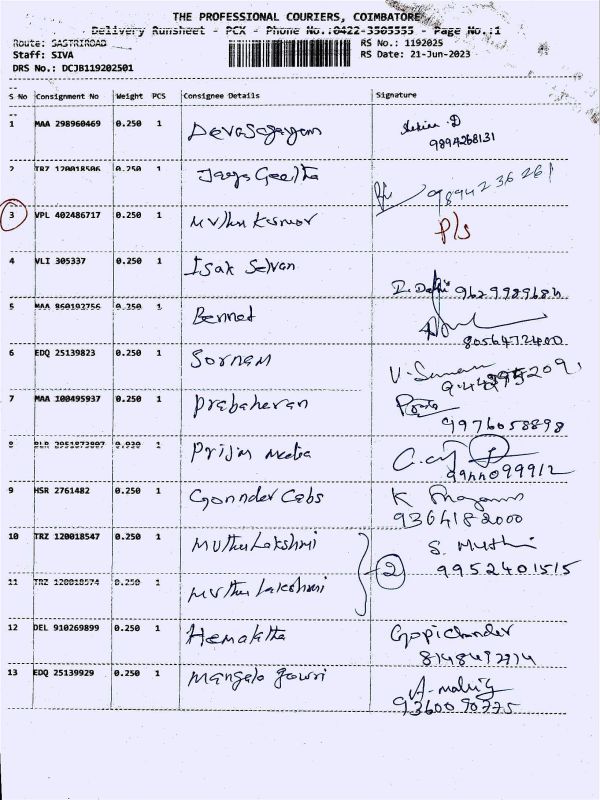 THE PROFESSIONAL COURIERS, COIMBATORE
Delivery Runsheet - PCX - Phone No.:0422-3505555 - Page No.:1
Route: SASTRIROAD RS No.: 1192025
Staff: SIVA RS Date: 21-Jun-2023
DRS No.: DCJB119202501
S No Consignment No Weight PCS Consignee Details Signature
1 MAA 298960469 0.250 1 Devasagayam
9894268131
2 TRZ 120018506 0.250 1 Jaya Geetha 9894236261
3 VPL 402486717 0.250 1 Muthu Kumar P/s
4 VLI 305337 0.250 1 Isak Selvan
9629989684
5 MAA 860192756 0.250 1 Bennet
8056472400
6 EDQ 25139823 0.250 1 Sornam
7 MAA 100495937 0.250 1 Prabaharan
9976058898
8 1 Prijin
9944099912
9 HSR 2761482 0.250 1 Gonnder Cabs K
9364182000
10 TRZ 120018547 0.250 1 Muthu Lakshmi S. Muthu
2 9952401515
11 TRZ 120018574 0.250 1 Muthu Lakshmi
12 DEL 910269899 0.250 1 Hemalatha Gopichander
8148492914
13 EDQ 25139929 0.250 1 Mangala gowri
9360090775